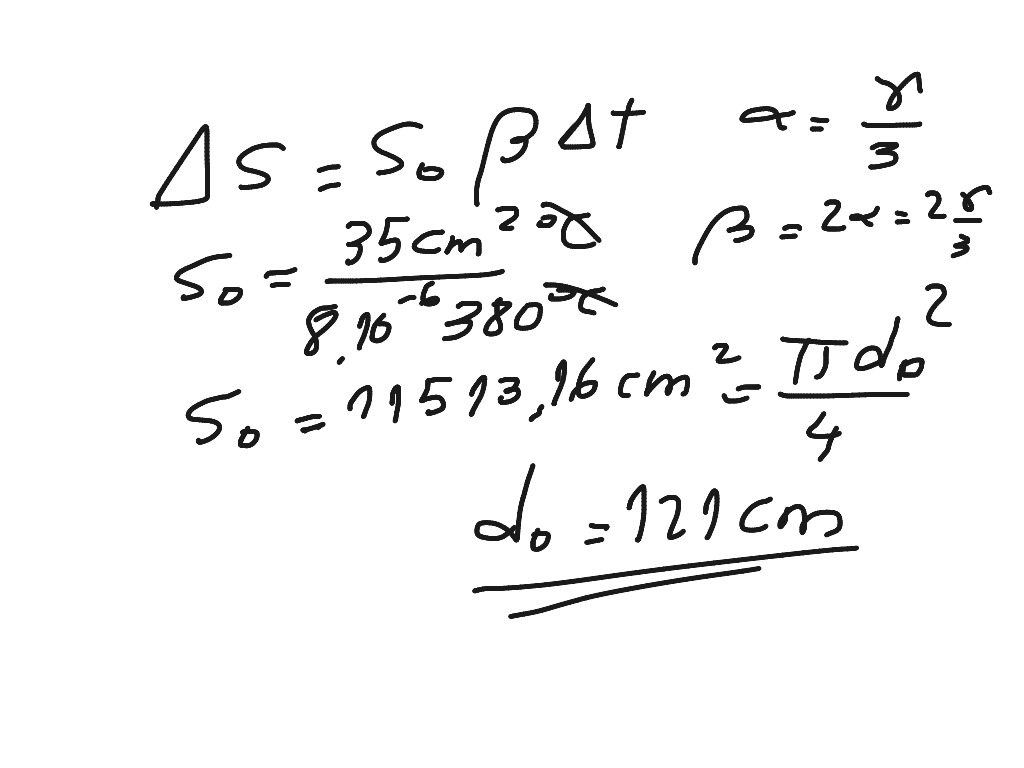 ΔS = S₀ β Δt   α = γ/3
S₀ = 35cm² °C / 8.10⁻⁶ 380 °C   β = 2α = 2γ/3
S₀ = 11513,16 cm² = πd₀²/4
d₀ = 121 cm